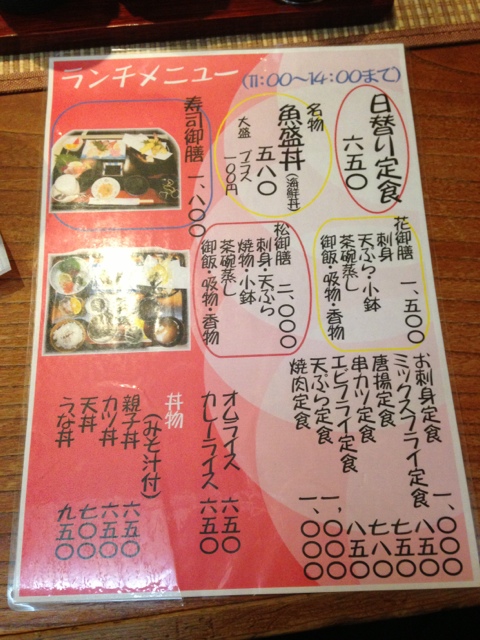 ランチメニュー (11:00〜14:00まで)
日替り定食 六五〇
名物
魚盛丼(海鮮丼) 五八〇
大盛 プラス 一〇〇円
寿司御膳 一、八〇〇
花御膳 一、五〇〇
刺身
天ぷら・小鉢
茶碗蒸し
御飯・吸物・香物
松御膳 二、〇〇〇
刺身・天ぷら
焼物・小鉢
茶碗蒸し
御飯・吸物・香物
お刺身定食 一、〇〇〇
ミックスフライ定食 八五〇
唐揚定食 七五〇
串カツ定食 七八〇
エビフライ定食 八五〇
天ぷら定食 一、〇〇〇
焼肉定食 一、〇〇〇
オムライス 六五〇
カレーライス 六五〇
丼物
(みそ汁付)
親子丼 六五〇
カツ丼 六五〇
天丼 七〇〇
うな丼 九五〇